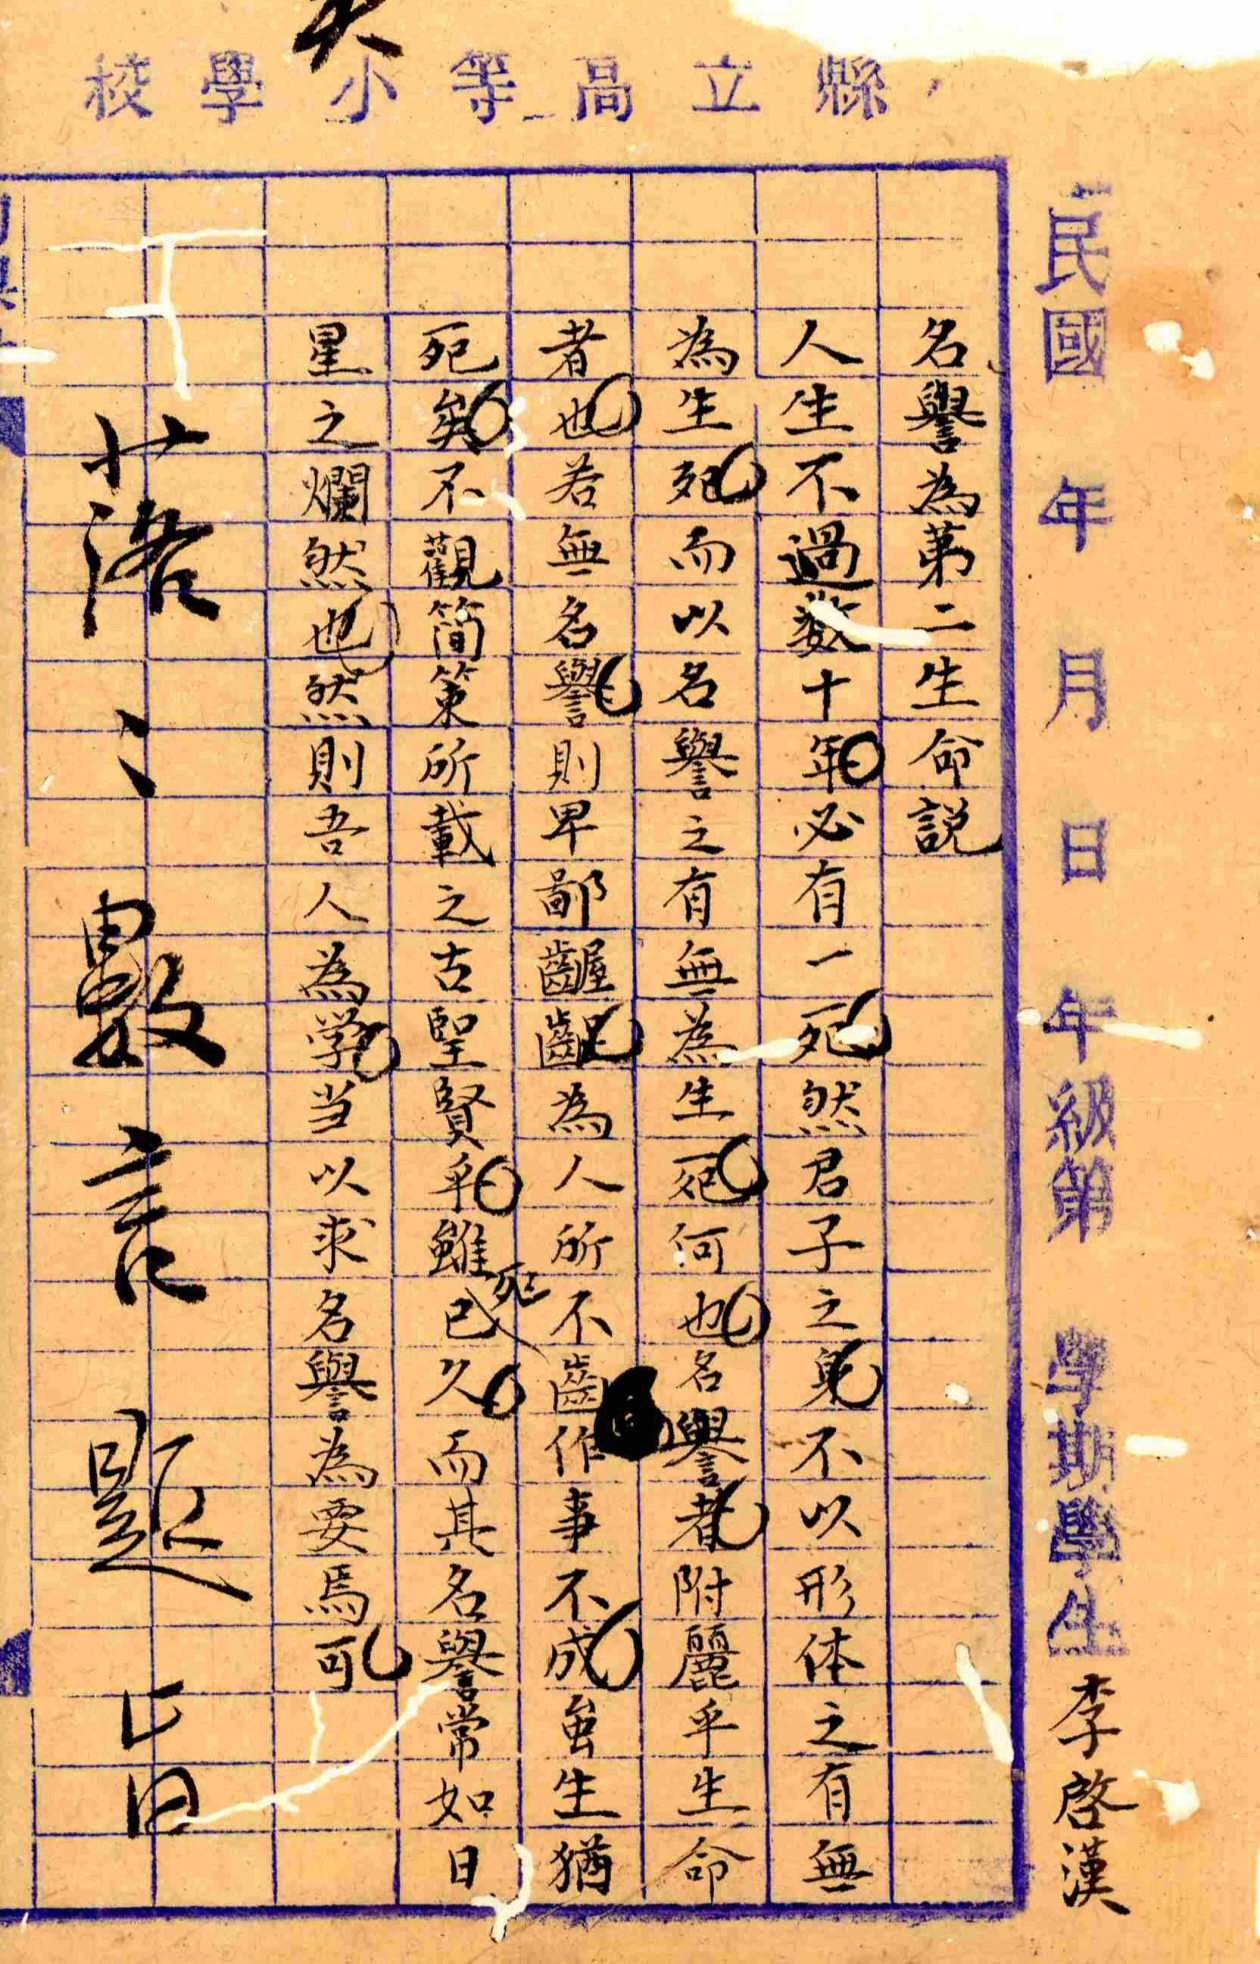 縣立高等小學校
民國 年 月 日 年級第 學期學生李啓漢
名譽為第二生命説
人生不過数十年必有一死然君子之身不以形体之有無
為生死而以名譽之有無為生死何也名譽者附麗乎生命
者也若無名譽則卑鄙齷齪為人所不齒作事不成虽生猶
死矣不觀简策所載之古聖賢乎雖死已久而其名譽常如日
星之爛然也然則吾人為学当以求名譽為要焉可
落〻數言題